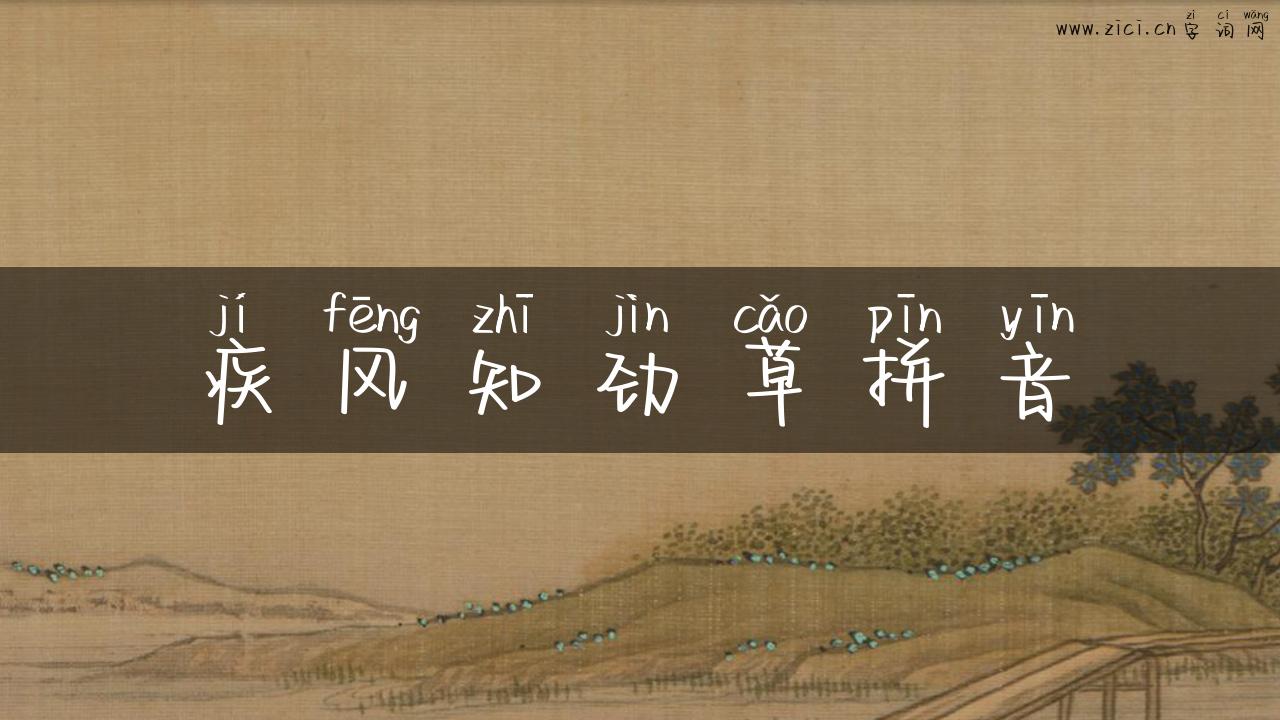 zì cí wǎng
www.zici.cn字词网
jí fēng zhī jìn cǎo pīn yīn
疾风知劲草拼音